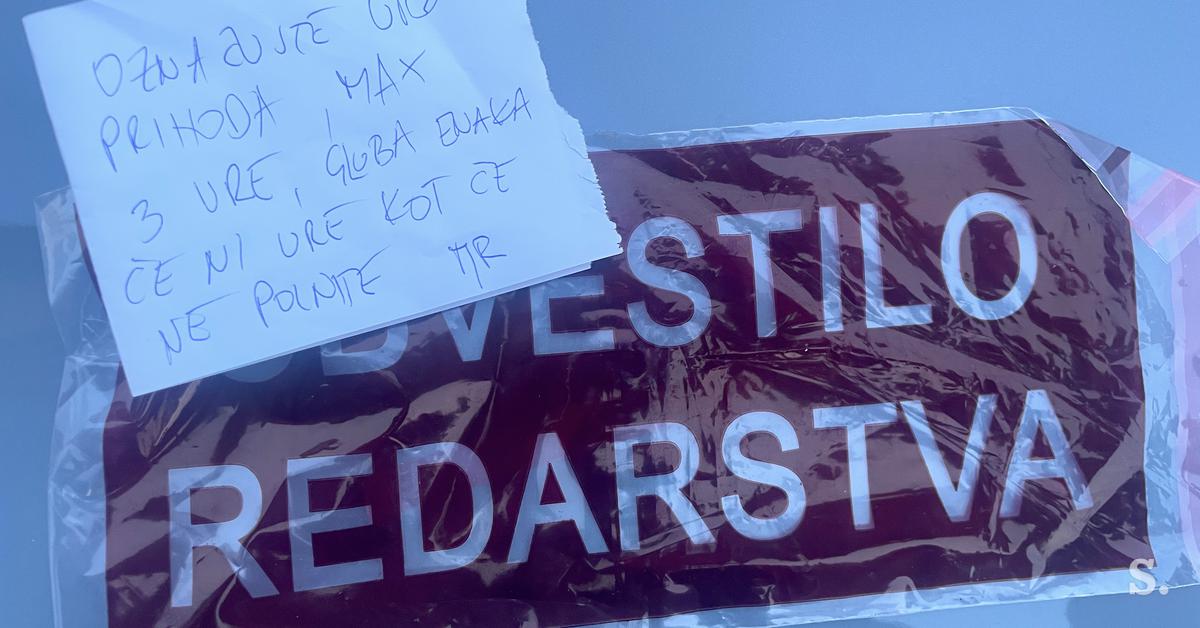 OZNAČUJTE URO
PRIHODA, MAX
3 URE, GLOBA ENAKA
ČE NI URE KOT ČE
NE POLNITE MR
OBVESTILO
REDARSTVA
S.